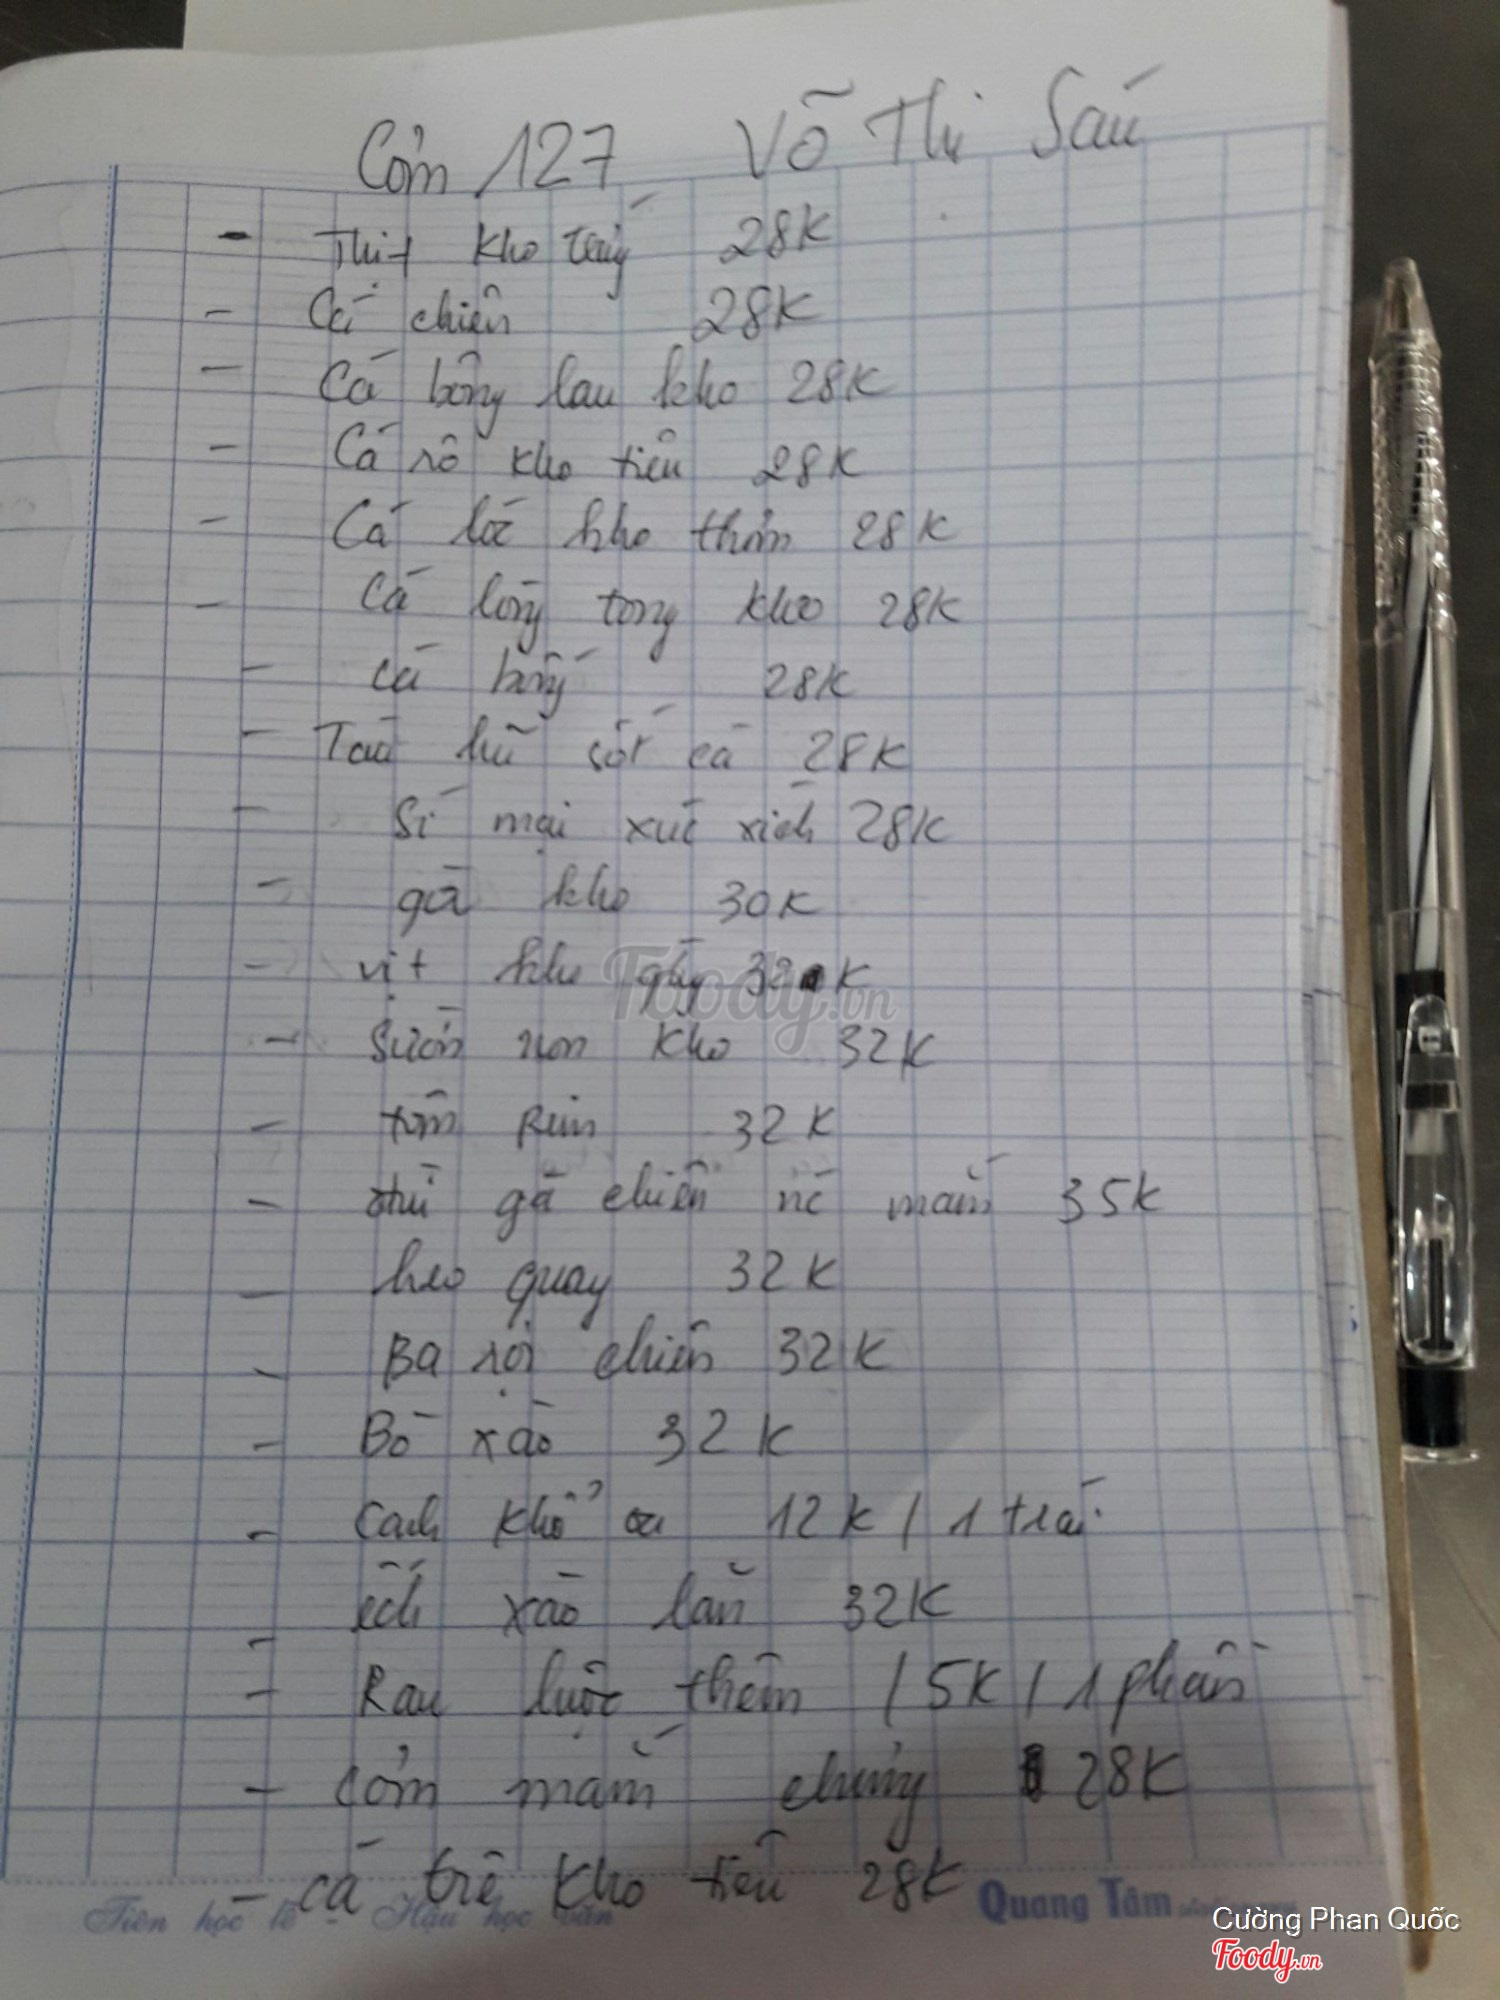 Cơm 127 Võ Thị Sáu
- Thịt kho trứng 28K
- Cá chiên 28K
- Cá bông lau kho 28K
- Cá rô kho tiêu 28K
- Cá lóc kho thơm 28K
- Cá lòng tong kho 28K
- Cá bống 28K
- Tàu hũ sốt cà 28K
- Sí mại xúc xích 28K
- gà kho 30K
- vịt kho gừng 32K
- Sườn non kho 32K
- tôm Rim 32K
- đùi gà chiên nc mắm 35K
- heo quay 32K
- Ba rọi chiên 32K
- Bò xào 32K
- Canh khổ qua 12K / 1 trái
- ếch xào lăn 32K
- Rau luộc thêm / 5K / 1 phần
- Cơm mắm chưng 28K
- cá trê kho tiêu 28K
Tiên học lễ Hậu học văn Quang Tâm
Cường Phan Quốc
Foody.vn
Foody.vn